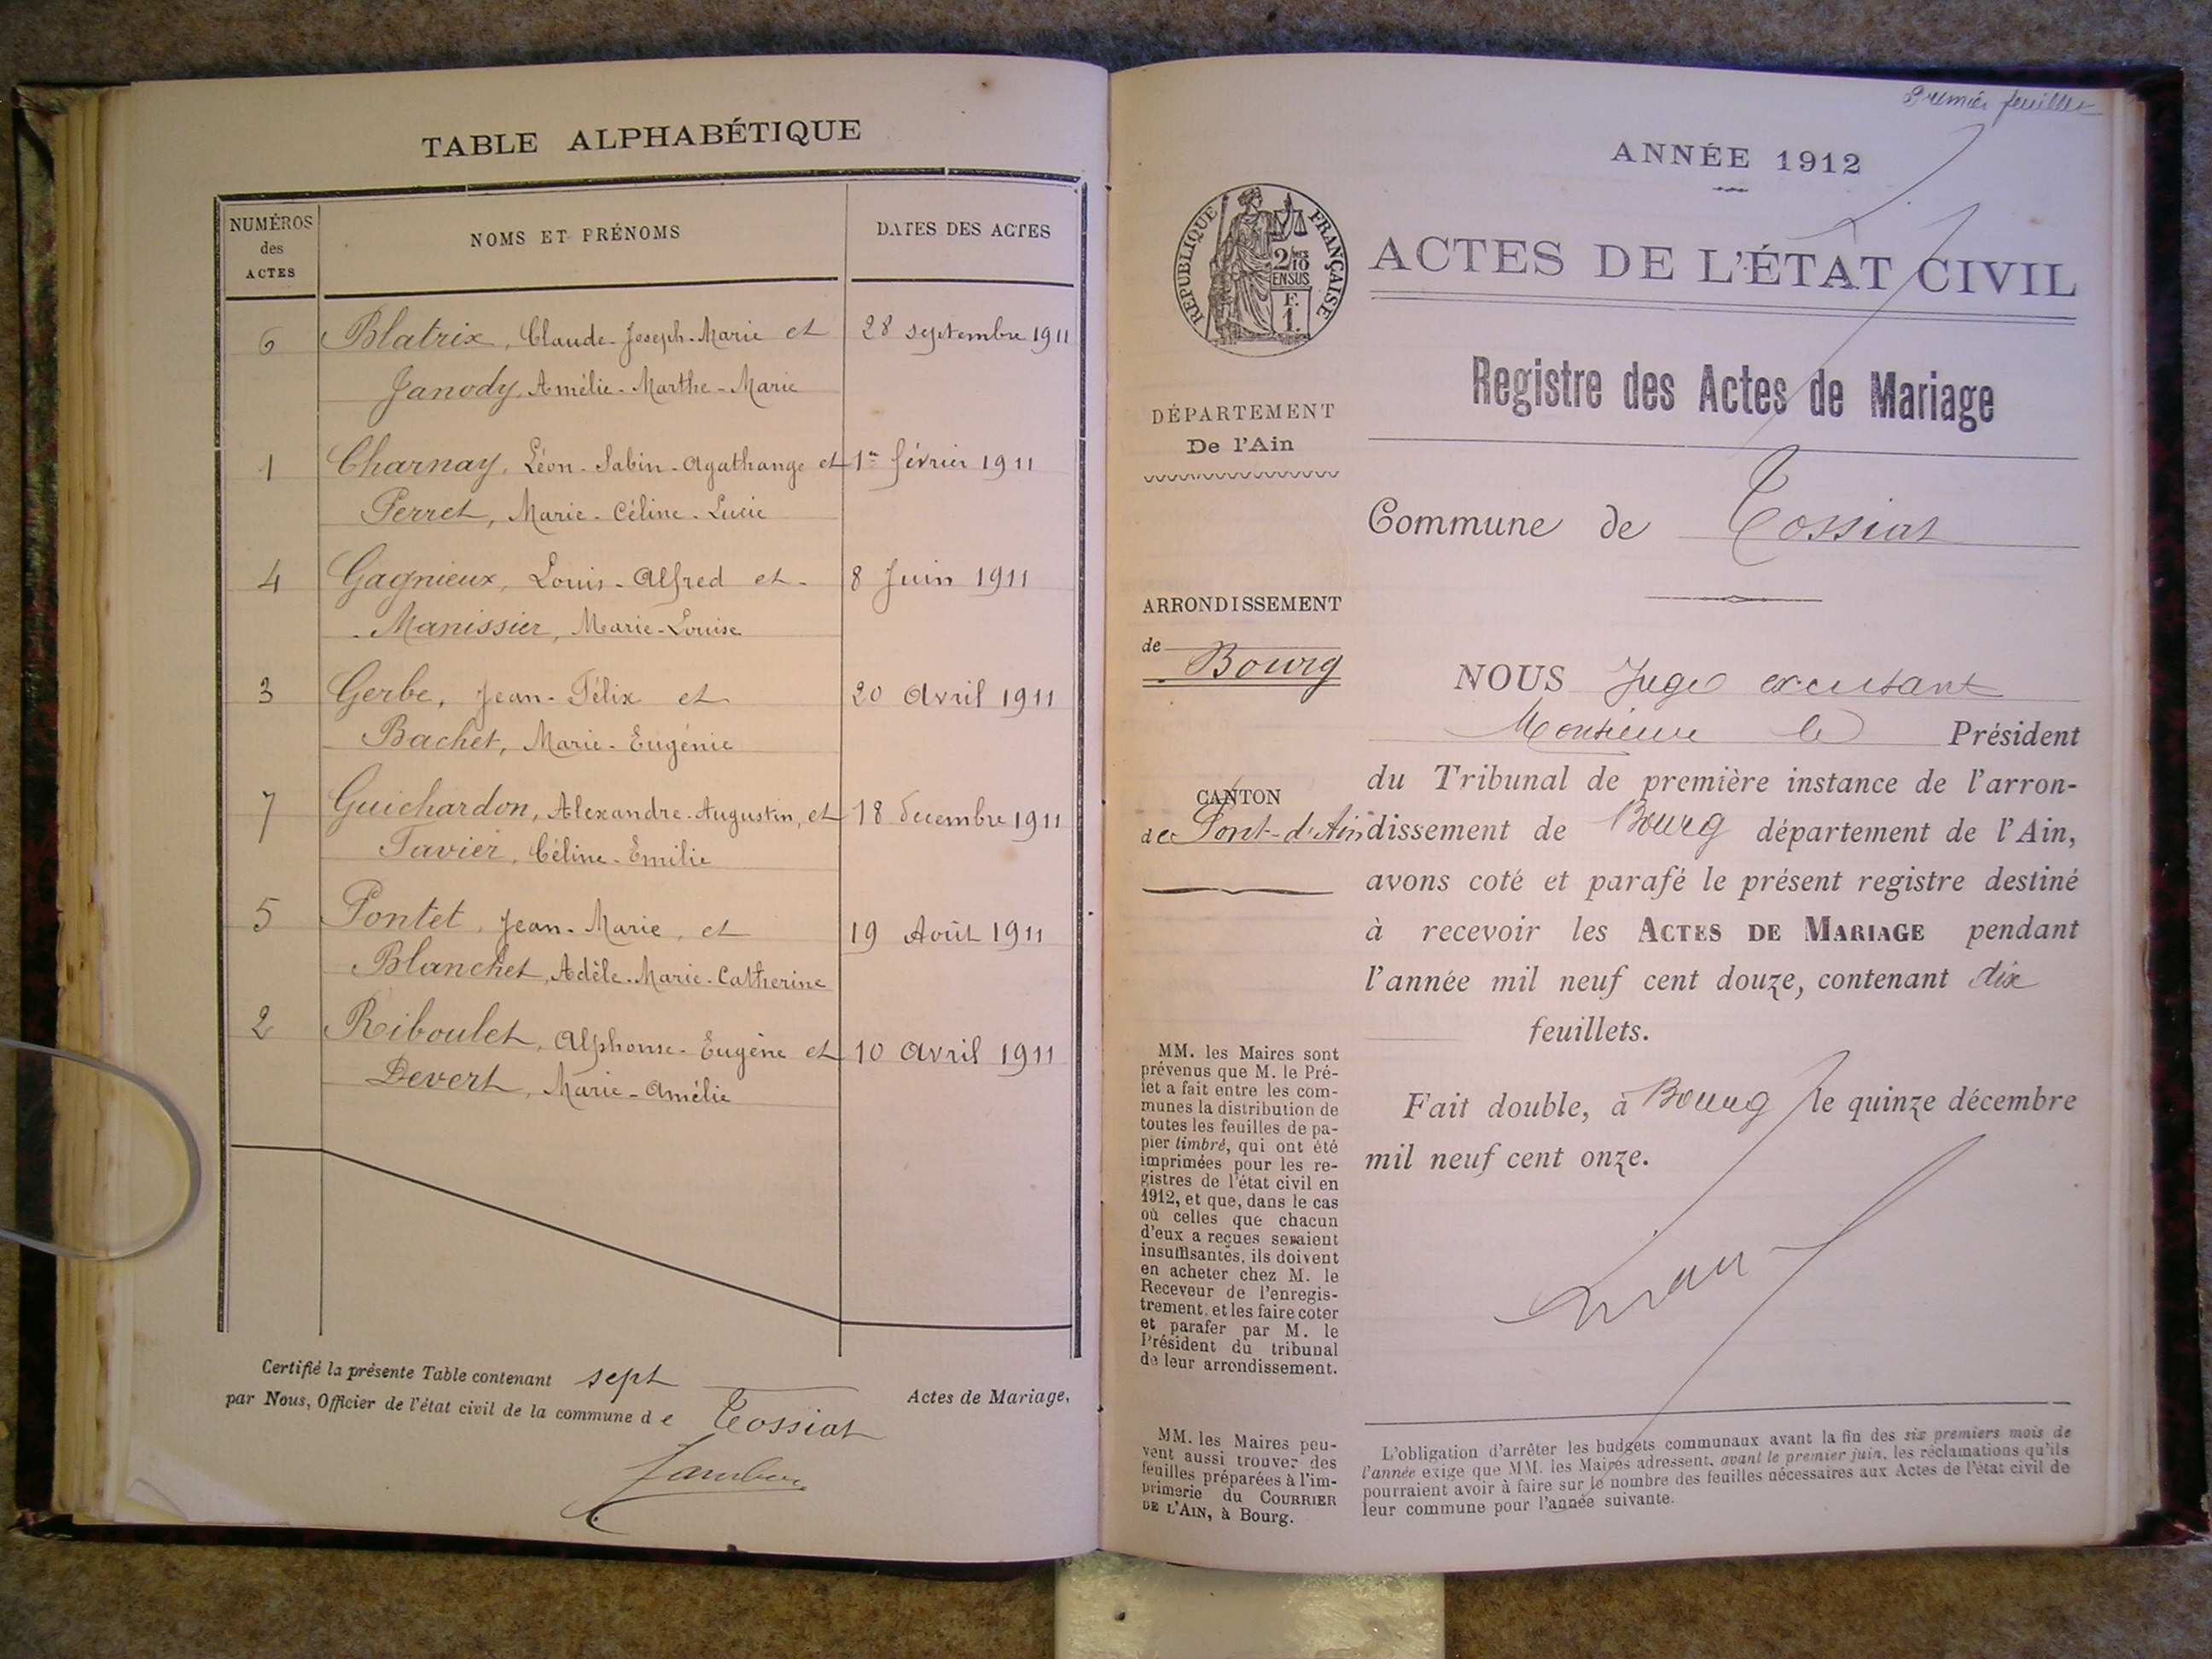 TABLE ALPHABÉTIQUE
NUMÉROS des ACTES
NOMS ET PRÉNOMS
DATES DES ACTES
6 Blatrix, Claude-Joseph-Marie et 28 septembre 1911
Janody, Amélie-Marthe-Marie
1 Charnay, Léon-Sabin-Agathange et 1er février 1911
Perret, Marie-Céline-Lucie
4 Gagnieux, Louis-Alfred et 8 Juin 1911
Manissier, Marie-Louise
3 Gerbe, Jean-Félix et 20 Avril 1911
Bachet, Marie-Eugénie
7 Guichardon, Alexandre-Augustin, et 18 décembre 1911
Tavier, Céline-Emilie
5 Pontet, Jean-Marie, et 19 Août 1911
Blanchet, Adèle-Marie-Catherine
2 Riboulet, Alphonse-Eugène et 10 Avril 1911
Devert, Marie-Amélie
Certifié la présente Table contenant sept Actes de Mariage,
par Nous, Officier de l'état civil de la commune de Tossiat
Premier feuillet
ANNÉE 1912
RÉPUBLIQUE FRANÇAISE
2/10 EN SUS
F. 1.
ACTES DE L'ÉTAT CIVIL
Registre des Actes de Mariage
DÉPARTEMENT
De l'Ain
Commune de Tossiat
ARRONDISSEMENT
de Bourg
CANTON
de Pont-d'Ain
NOUS Juge excusant
Monsieur le Président
du Tribunal de première instance de l'arron-
dissement de Bourg département de l'Ain,
avons coté et parafé le présent registre destiné
à recevoir les ACTES DE MARIAGE pendant
l'année mil neuf cent douze, contenant dix
feuillets.
Fait double, à Bourg le quinze décembre
mil neuf cent onze.
MM. les Maires sont
prévenus que M. le Pré-
fet a fait entre les com-
munes la distribution de
toutes les feuilles de pa-
pier timbré, qui ont été
imprimées pour les re-
gistres de l'état civil en
1912, et que, dans le cas
où celles que chacun
d'eux a reçues seraient
insuffisantes, ils doivent
en acheter chez M. le
Receveur de l'enregis-
trement, et les faire coter
et parafer par M. le
Président du tribunal
de leur arrondissement.
MM. les Maires peu-
vent aussi trouver des
feuilles préparées à l'im-
primerie du COURRIER
DE L'AIN, à Bourg.
L'obligation d'arrêter les budgets communaux avant la fin des six premiers mois de
l'année exige que MM. les Maires adressent, avant le premier juin, les réclamations qu'ils
pourraient avoir à faire sur le nombre des feuilles nécessaires aux Actes de l'état civil de
leur commune pour l'année suivante.